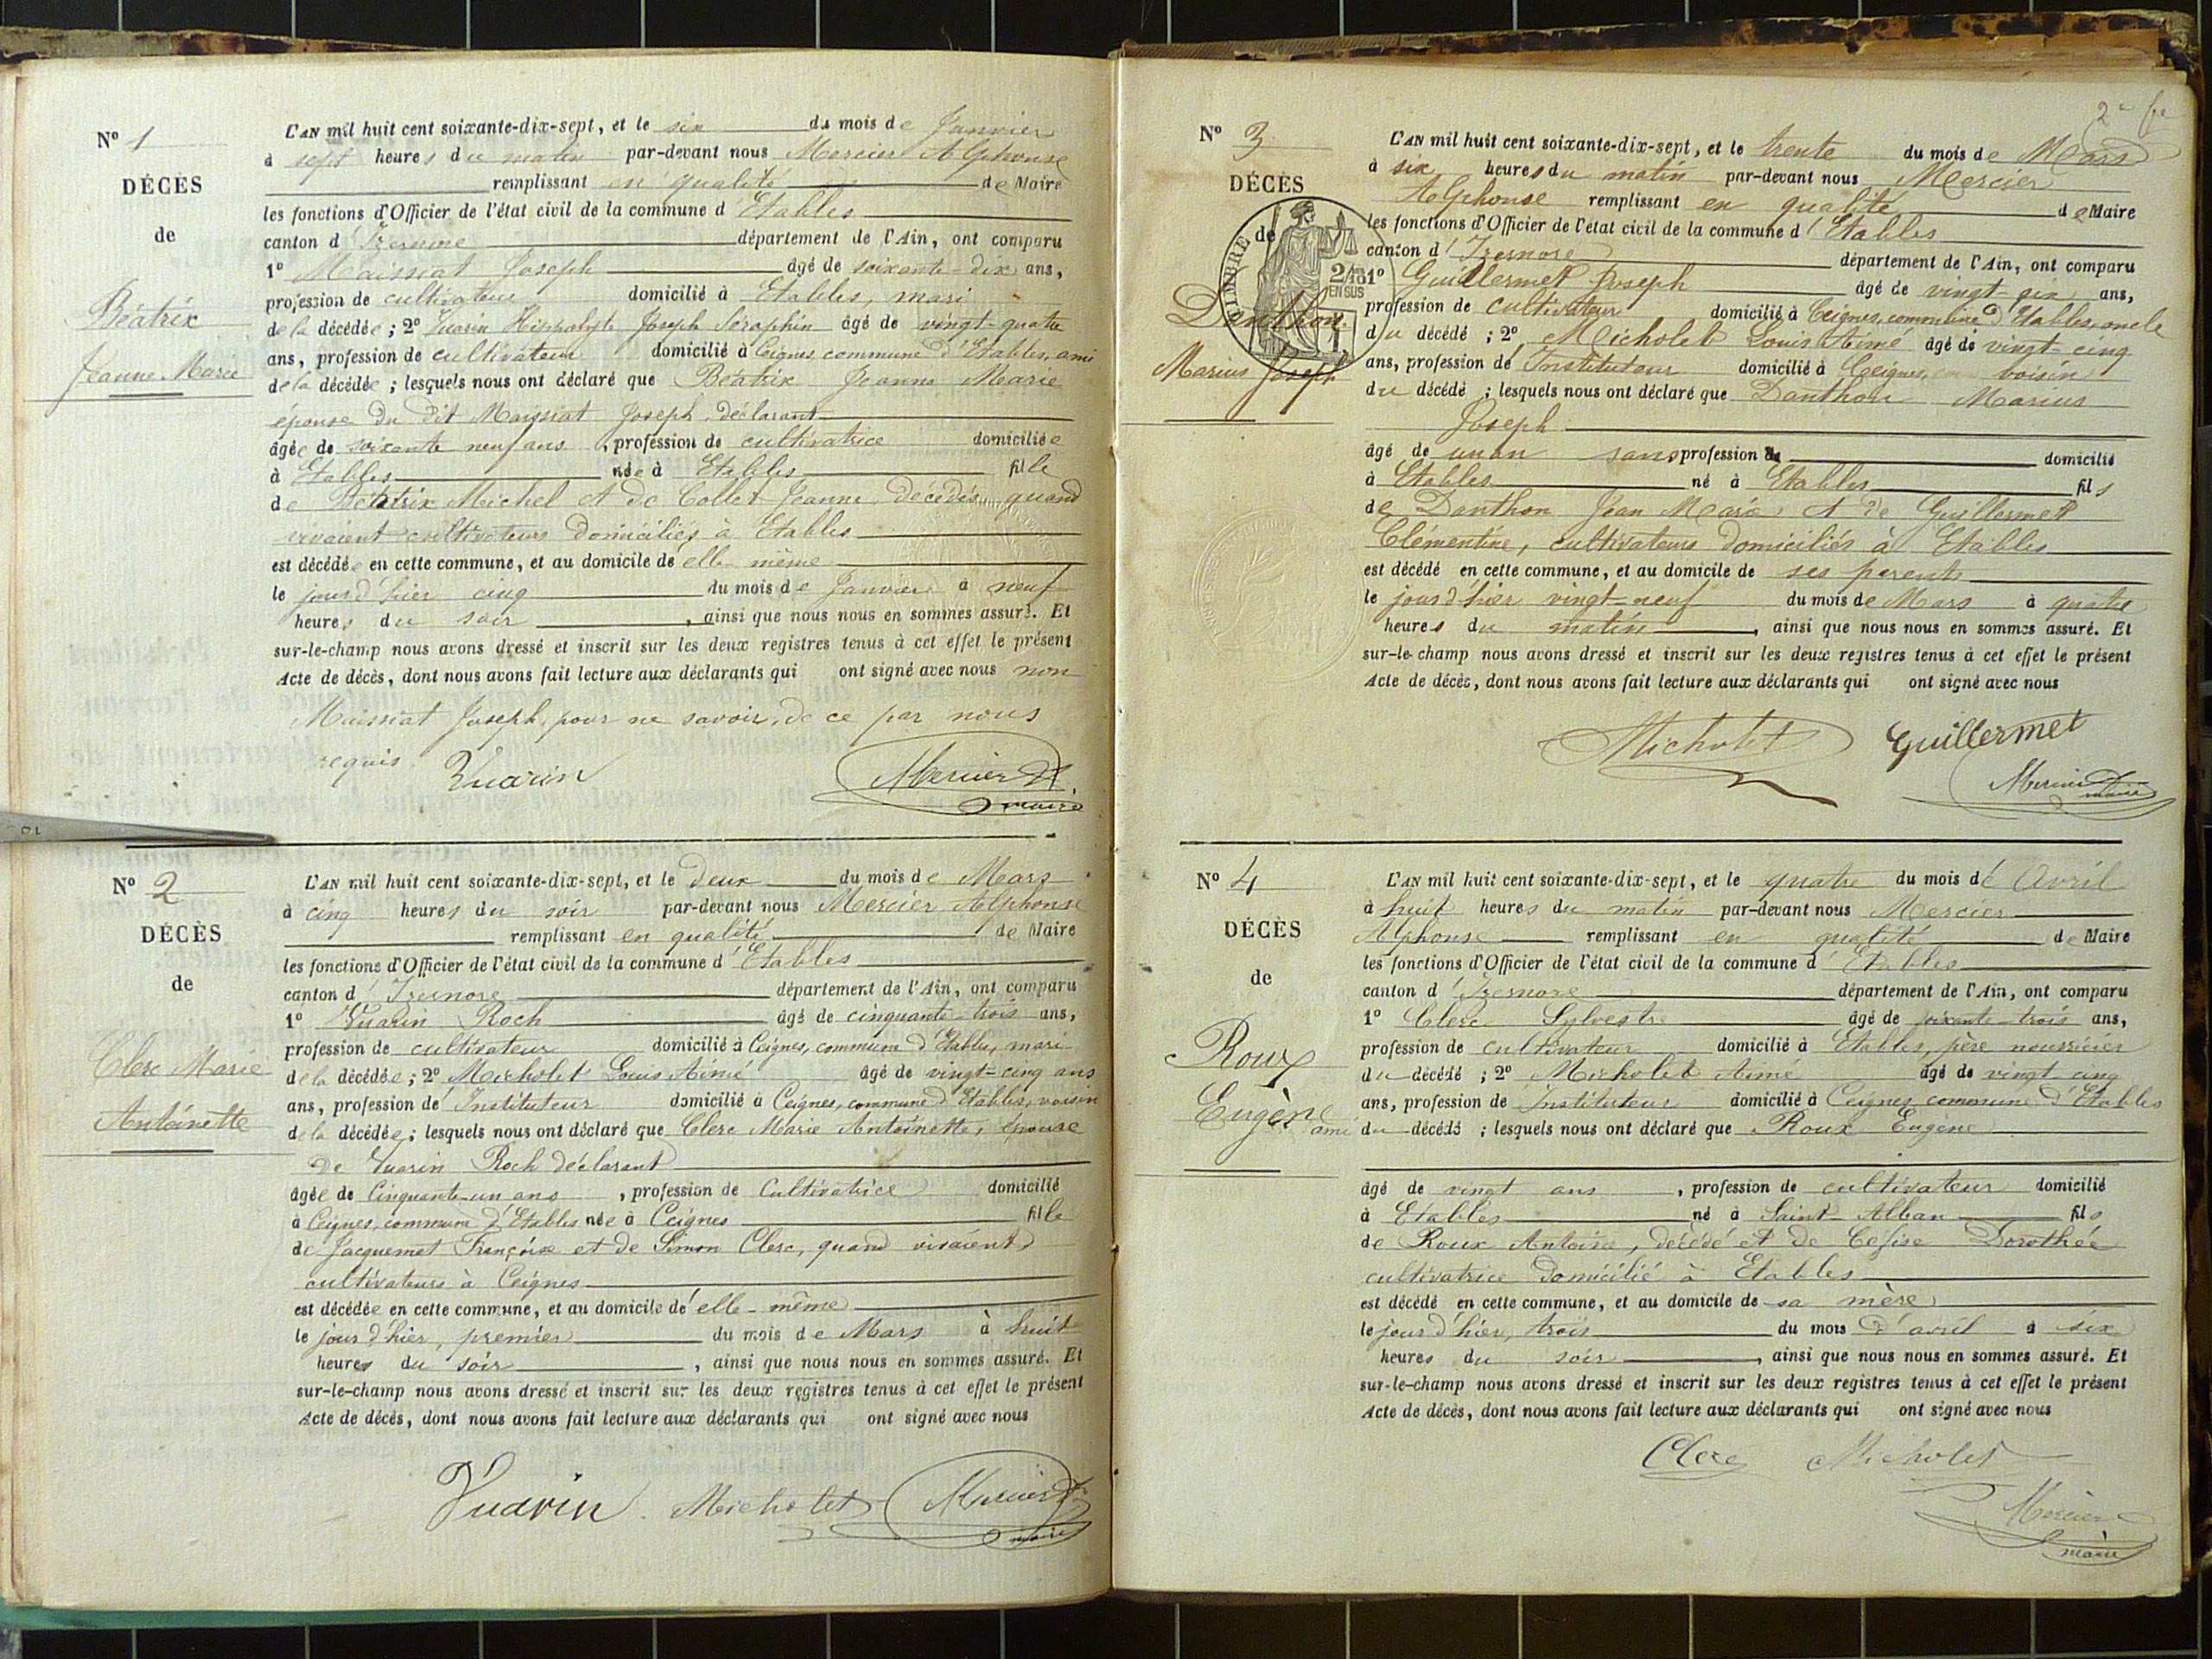 N° 1
DÉCÈS
de
Béatrix
Jeanne Marie
L'AN mil huit cent soixante-dix-sept, et le six du mois de Janvier
à sept heures du matin par-devant nous Mercier Alphonse
remplissant en qualité de Maire
les fonctions d'Officier de l'état civil de la commune d'Etables
canton d'Izernore département de l'Ain, ont comparu
1° Maissiat Joseph âgé de soixante-dix ans,
profession de cultivateur domicilié à Etables, mari
de la décédée ; 2° Vuarin Hippolyte Joseph Séraphin âgé de vingt-quatre
ans, profession de cultivateur domicilié à Ceignes commune d'Etables, ami
de la décédée ; lesquels nous ont déclaré que Béatrix Jeanne Marie
épouse du dit Maissiat Joseph, déclarant
âgée de soixante neuf ans, profession de cultivatrice domiciliée
à Etables née à Etables fille
de Béatrix Michel et de Collet Jeanne, décédés quand
vivaient cultivateurs domiciliés à Etables
est décédée en cette commune, et au domicile de elle même
le jour d'hier cinq du mois de Janvier à neuf
heures du soir, ainsi que nous nous en sommes assuré. Et
sur-le-champ nous avons dressé et inscrit sur les deux registres tenus à cet effet le présent
Acte de décès, dont nous avons fait lecture aux déclarants qui ont signé avec nous non
Maissiat Joseph, pour ne savoir, de ce par nous
requis.
Vuarin Mercier A.
maire
N° 2
DÉCÈS
de
Clerc Marie
Antoinette
L'AN mil huit cent soixante-dix-sept, et le deux du mois de Mars
à cinq heures du soir par-devant nous Mercier Alphonse
remplissant en qualité de Maire
les fonctions d'Officier de l'état civil de la commune d'Etables
canton d'Izernore département de l'Ain, ont comparu
1° Vuarin Roch âgé de cinquante-trois ans,
profession de cultivateur domicilié à Ceignes, commune d'Etables, mari
de la décédée ; 2° Micholet Louis Aimé âgé de vingt-cinq ans
ans, profession de Instituteur domicilié à Ceignes, commune d'Etables, voisin
de la décédée ; lesquels nous ont déclaré que Clerc Marie Antoinette, épouse
de Vuarin Roch déclarant
âgée de Cinquante-un ans, profession de Cultivatrice domicilié
à Ceignes, commune d'Etables née à Ceignes fille
de Jacquemet Françoise et de Simon Clerc, quand vivaient
cultivateurs à Ceignes
est décédée en cette commune, et au domicile de elle-même
le jour d'hier, premier du mois de Mars à huit
heures du soir, ainsi que nous nous en sommes assuré. Et
sur-le-champ nous avons dressé et inscrit sur les deux registres tenus à cet effet le présent
Acte de décès, dont nous avons fait lecture aux déclarants qui ont signé avec nous
Vuarin. Micholet Mercier A.
maire
2e
N° 3
DÉCÈS
de
Danthon
Marius Joseph
TIMBRE
2/10
EN SUS
L'AN mil huit cent soixante-dix-sept, et le trente du mois de Mars
à six heures du matin par-devant nous Mercier
Alphonse remplissant en qualité de Maire
les fonctions d'Officier de l'état civil de la commune d'Etables
canton d'Izernore département de l'Ain, ont comparu
1° Guillermet Joseph âgé de vingt six ans,
profession de cultivateur domicilié à Ceignes, commune d'Etables, oncle
du décédé ; 2° Micholet Louis Aimé âgé de vingt-cinq
ans, profession de Instituteur domicilié à Ceignes, voisin
du décédé ; lesquels nous ont déclaré que Danthon Marius
Joseph
âgé de un an sans profession domicilié
à Etables né à Etables fils
de Danthon Jean Marie et de Guillermet
Clémentine, cultivateurs domiciliés à Etables
est décédé en cette commune, et au domicile de ses parents
le jour d'hier vingt-neuf du mois de Mars à quatre
heures du matin, ainsi que nous nous en sommes assuré. Et
sur-le-champ nous avons dressé et inscrit sur les deux registres tenus à cet effet le présent
Acte de décès, dont nous avons fait lecture aux déclarants qui ont signé avec nous
Micholet Guillermet
Mercier A.
maire
N° 4
DÉCÈS
de
Roux
Eugène
L'AN mil huit cent soixante-dix-sept, et le quatre du mois de Avril
à huit heures du matin par-devant nous Mercier
Alphonse remplissant en qualité de Maire
les fonctions d'Officier de l'état civil de la commune d'Etables
canton d'Izernore département de l'Ain, ont comparu
1° Clerc Sylvestre âgé de soixante-trois ans,
profession de cultivateur domicilié à Etables, père nourricier
du décédé ; 2° Micholet Aimé âgé de vingt cinq
ans, profession de Instituteur domicilié à Ceignes commune d'Etables
ami du décédé ; lesquels nous ont déclaré que Roux Eugène
âgé de vingt ans, profession de cultivateur domicilié
à Etables né à Saint-Alban fils
de Roux Antoine, décédé et de Dorothée
cultivatrice domicilié à Etables
est décédé en cette commune, et au domicile de sa mère
le jour d'hier, trois du mois d'avril à six
heures du soir, ainsi que nous nous en sommes assuré. Et
sur-le-champ nous avons dressé et inscrit sur les deux registres tenus à cet effet le présent
Acte de décès, dont nous avons fait lecture aux déclarants qui ont signé avec nous
Clerc Micholet
Mercier
maire